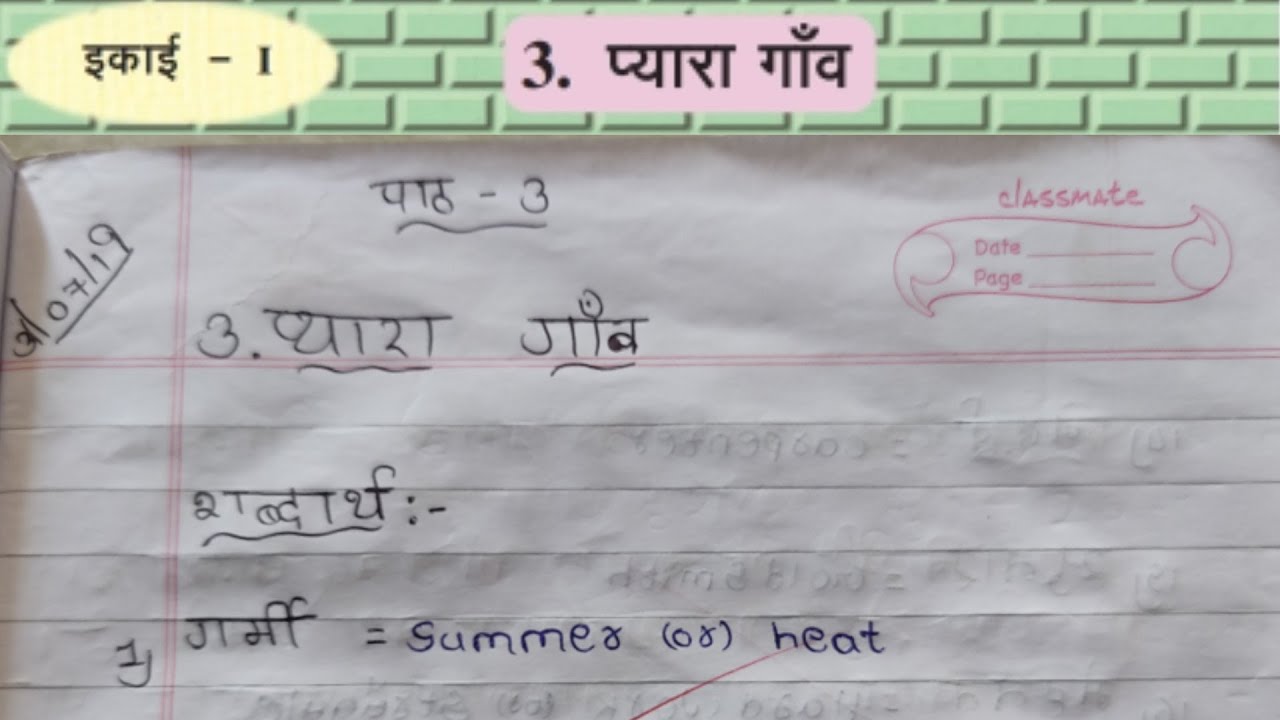 इकाई - I
3. प्यारा गाँव
पाठ - 3
classmate
Date
Page
07/19
3. प्यारा गाँव
शब्दार्थ :-
1) गर्मी = summer (or) heat